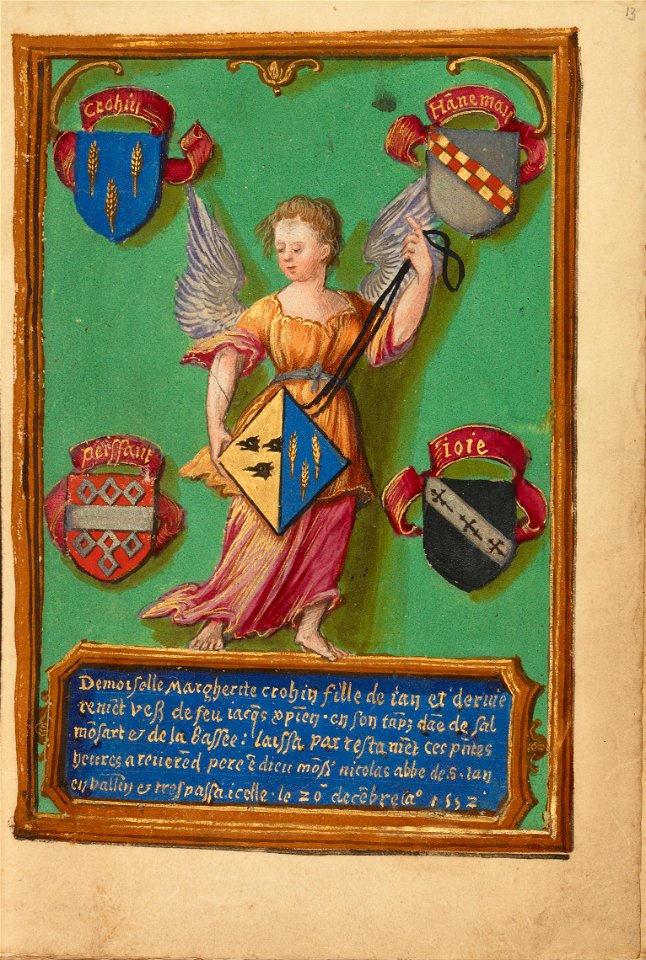 13
Crohin
Hãneman
perssant
ioie
Demoiselle Margherite crohin fille de ian et derniere
remẽt veſ de feu iacqs xp̃ien · en son tãpz dãe de sal
mõsart & de la bassee : laissa par testamẽt ces pñtes
heures a reuerẽd pere ẽ dieu mõsr nicolas abbe de · s · ian
en vallẽn & trespassa icelle · le 20 decẽbre lao 1552